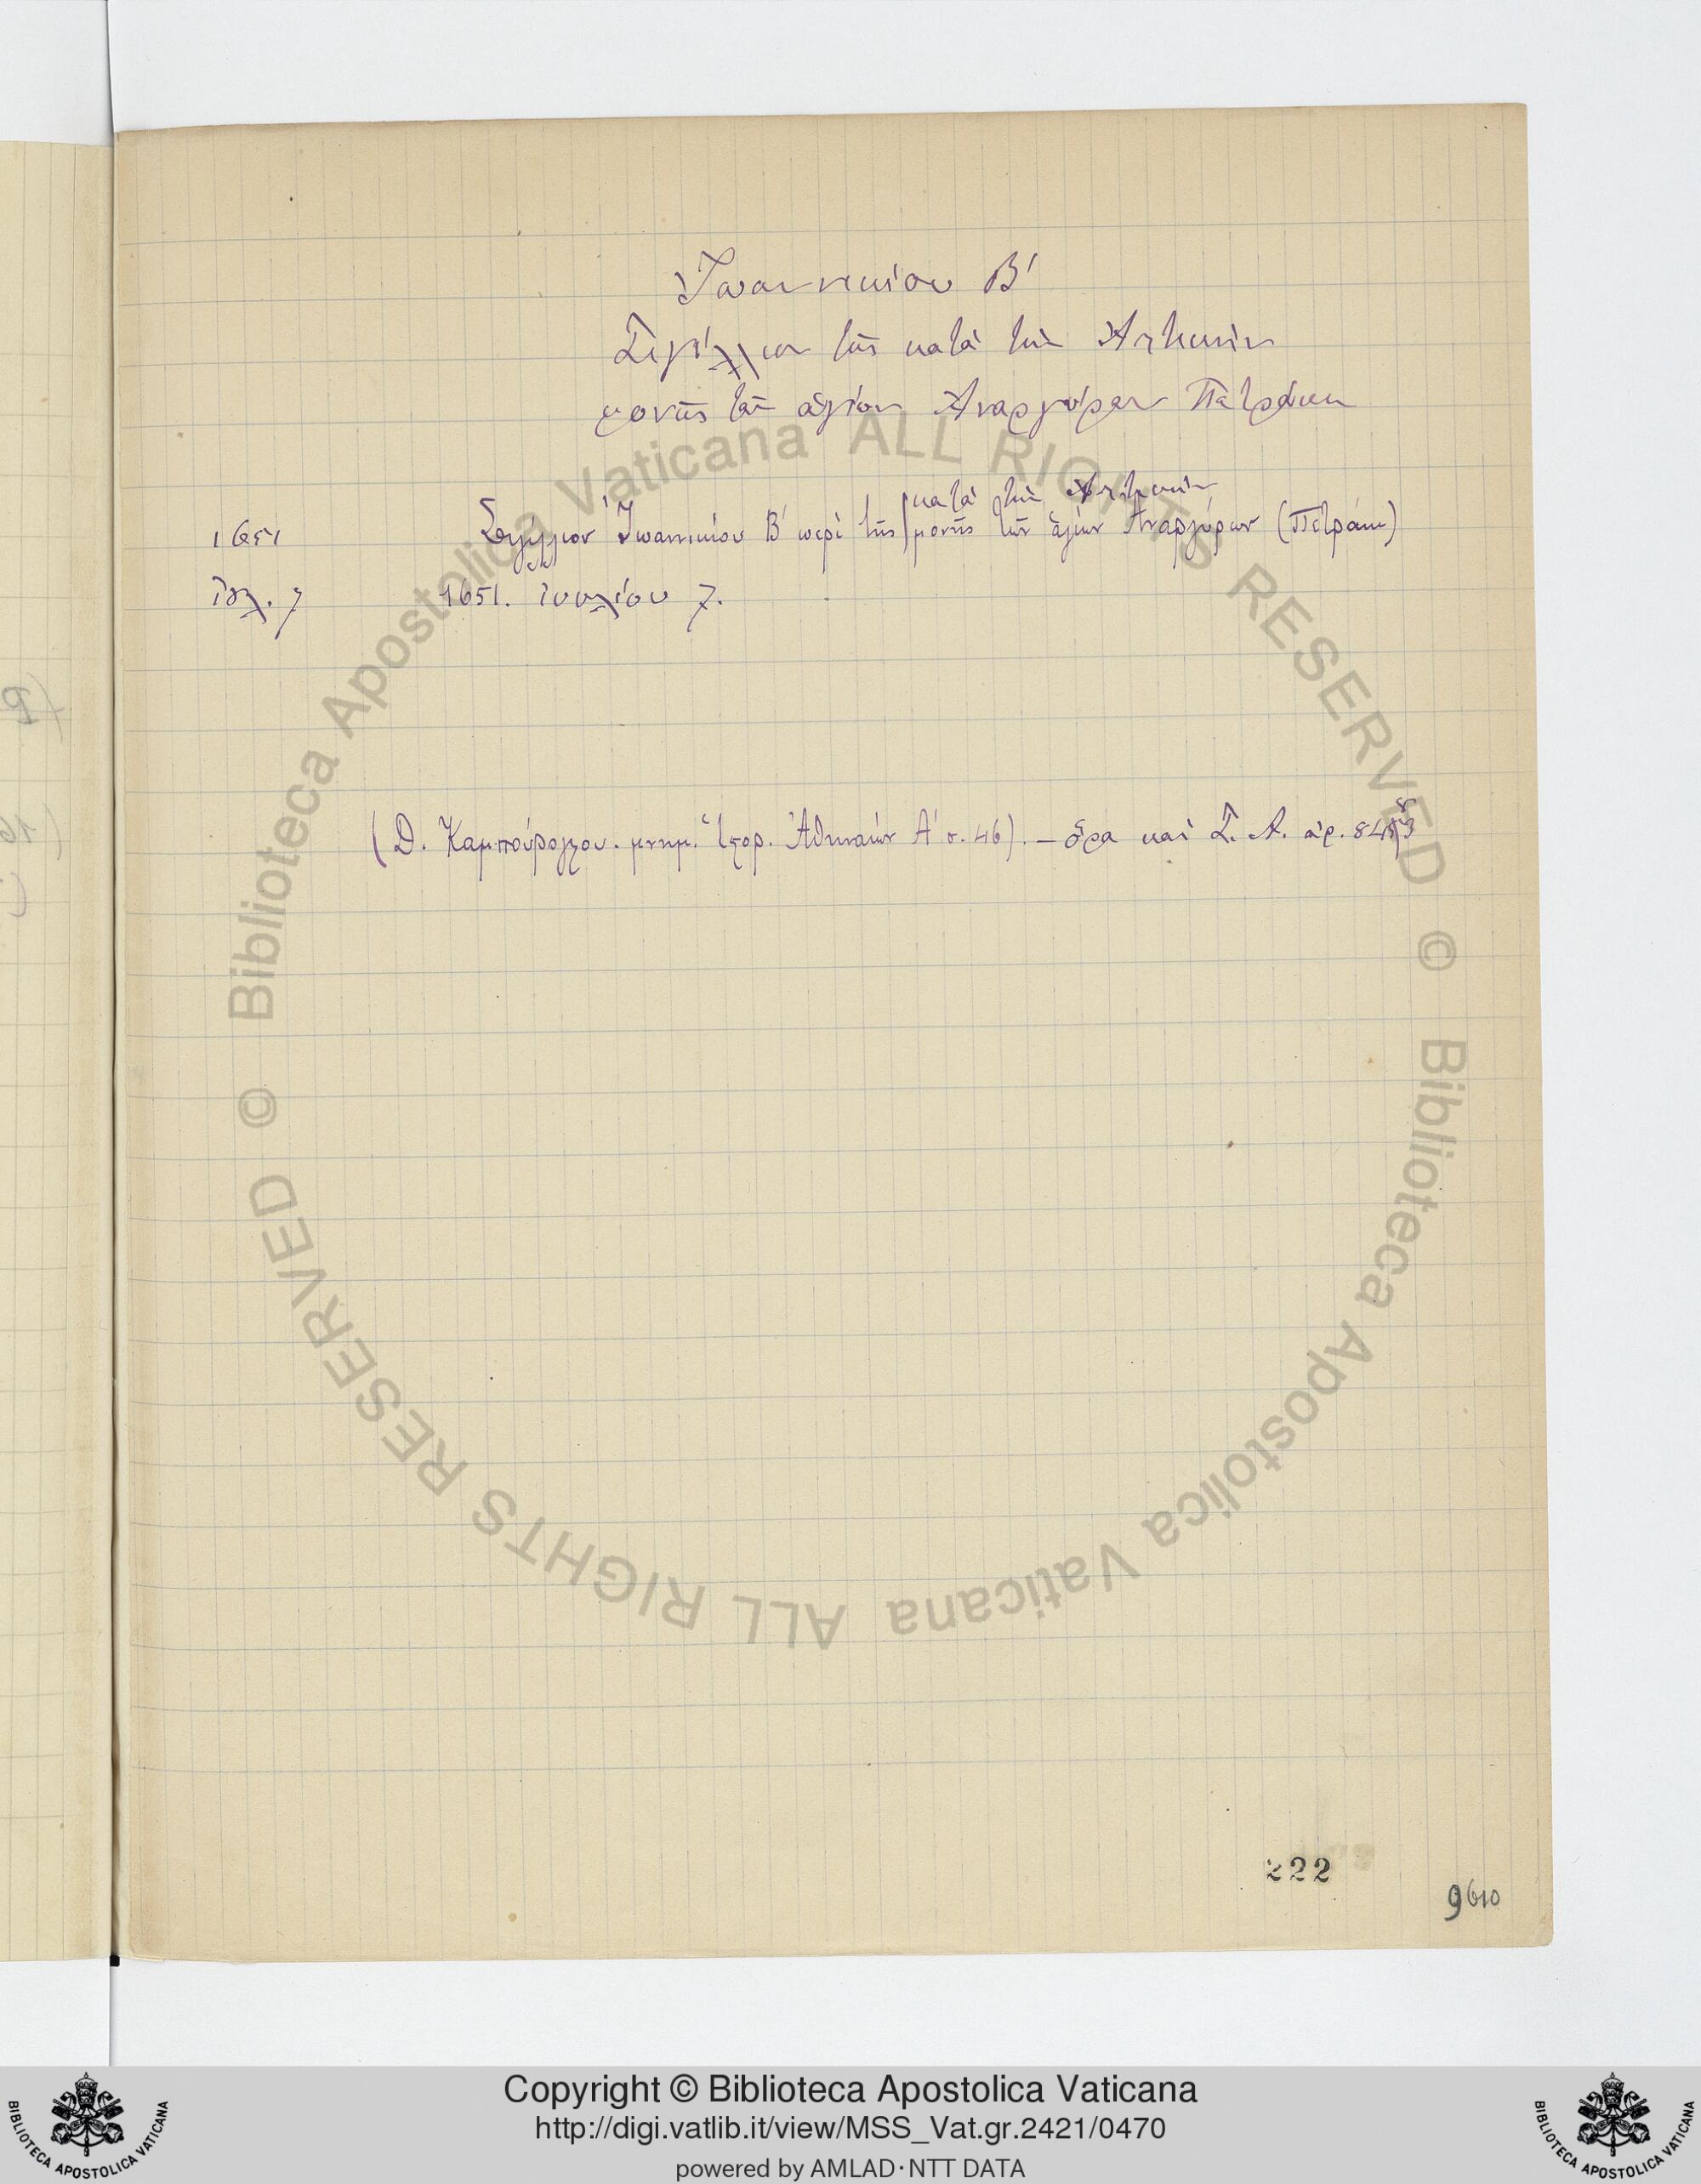 Ἰωαννικίου Β΄
Σιγίλλιον τῆς κατὰ τὴν Ἀττικὴν
μονῆς τῶν ἁγίων Ἀναργύρων Πετράκη
κατὰ τὴν Ἀττικὴν
1651 Σιγίλλιον Ἰωαννικίου Β΄ περὶ τῆς μονῆς τῶν ἁγίων Ἀναργύρων (Πετράκη)
Ἰουλ. 7 1651. Ἰουλίου 7.
(Δ. Καμπούρογλου. μνημ. Ἱστορ. Ἀθηναίων Α΄ σ. 46). — ὅρα καὶ Σ. Α. ἀρ.
222
9610
© Biblioteca Apostolica Vaticana ALL RIGHTS RESERVED
© Biblioteca Apostolica Vaticana ALL RIGHTS RESERVED
Copyright © Biblioteca Apostolica Vaticana
http://digi.vatlib.it/view/MSS_Vat.gr.2421/0470
powered by AMLAD·NTT DATA
BIBLIOTECA APOSTOLICA VATICANA
BIBLIOTECA APOSTOLICA VATICANA